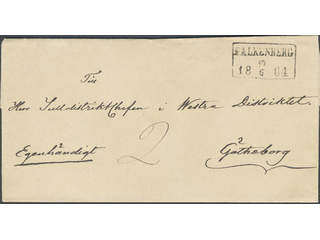 FALKENBERG
18 6 64
Till
Herr Tulldistriktchefen i Westra Distriktet
Egenhändigt
2
Götheborg